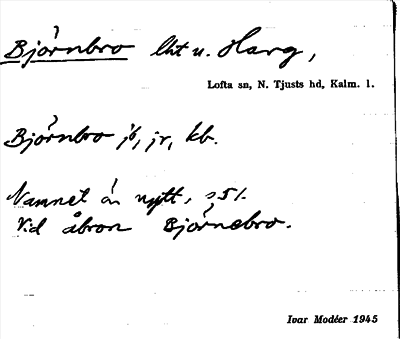 Björnbro lht u. Harg,
Lofta sn, N. Tjusts hd, Kalm. l.
Björnbro jb, jr, kb.
Namnet är nytt, s. 51.
Vid åbron Björnebro.
Ivar Modéer 1945